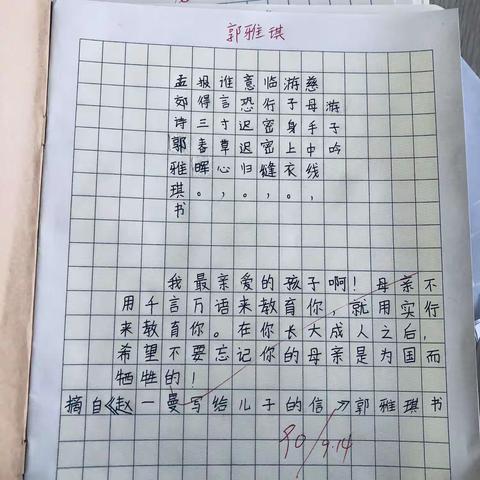 郭雅琪
游子吟
慈母手中线，
游子身上衣。
临行密密缝，
意恐迟迟归。
谁言寸草心，
报得三春晖。
孟郊诗郭雅琪书
我最亲爱的孩子啊！母亲不
用千言万语来教育你，就用实行
来教育你。在你长大成人之后，
希望不要忘记你的母亲是为国而
牺牲的！
摘自《赵一曼写给儿子的信》郭雅琪书
90/9.14